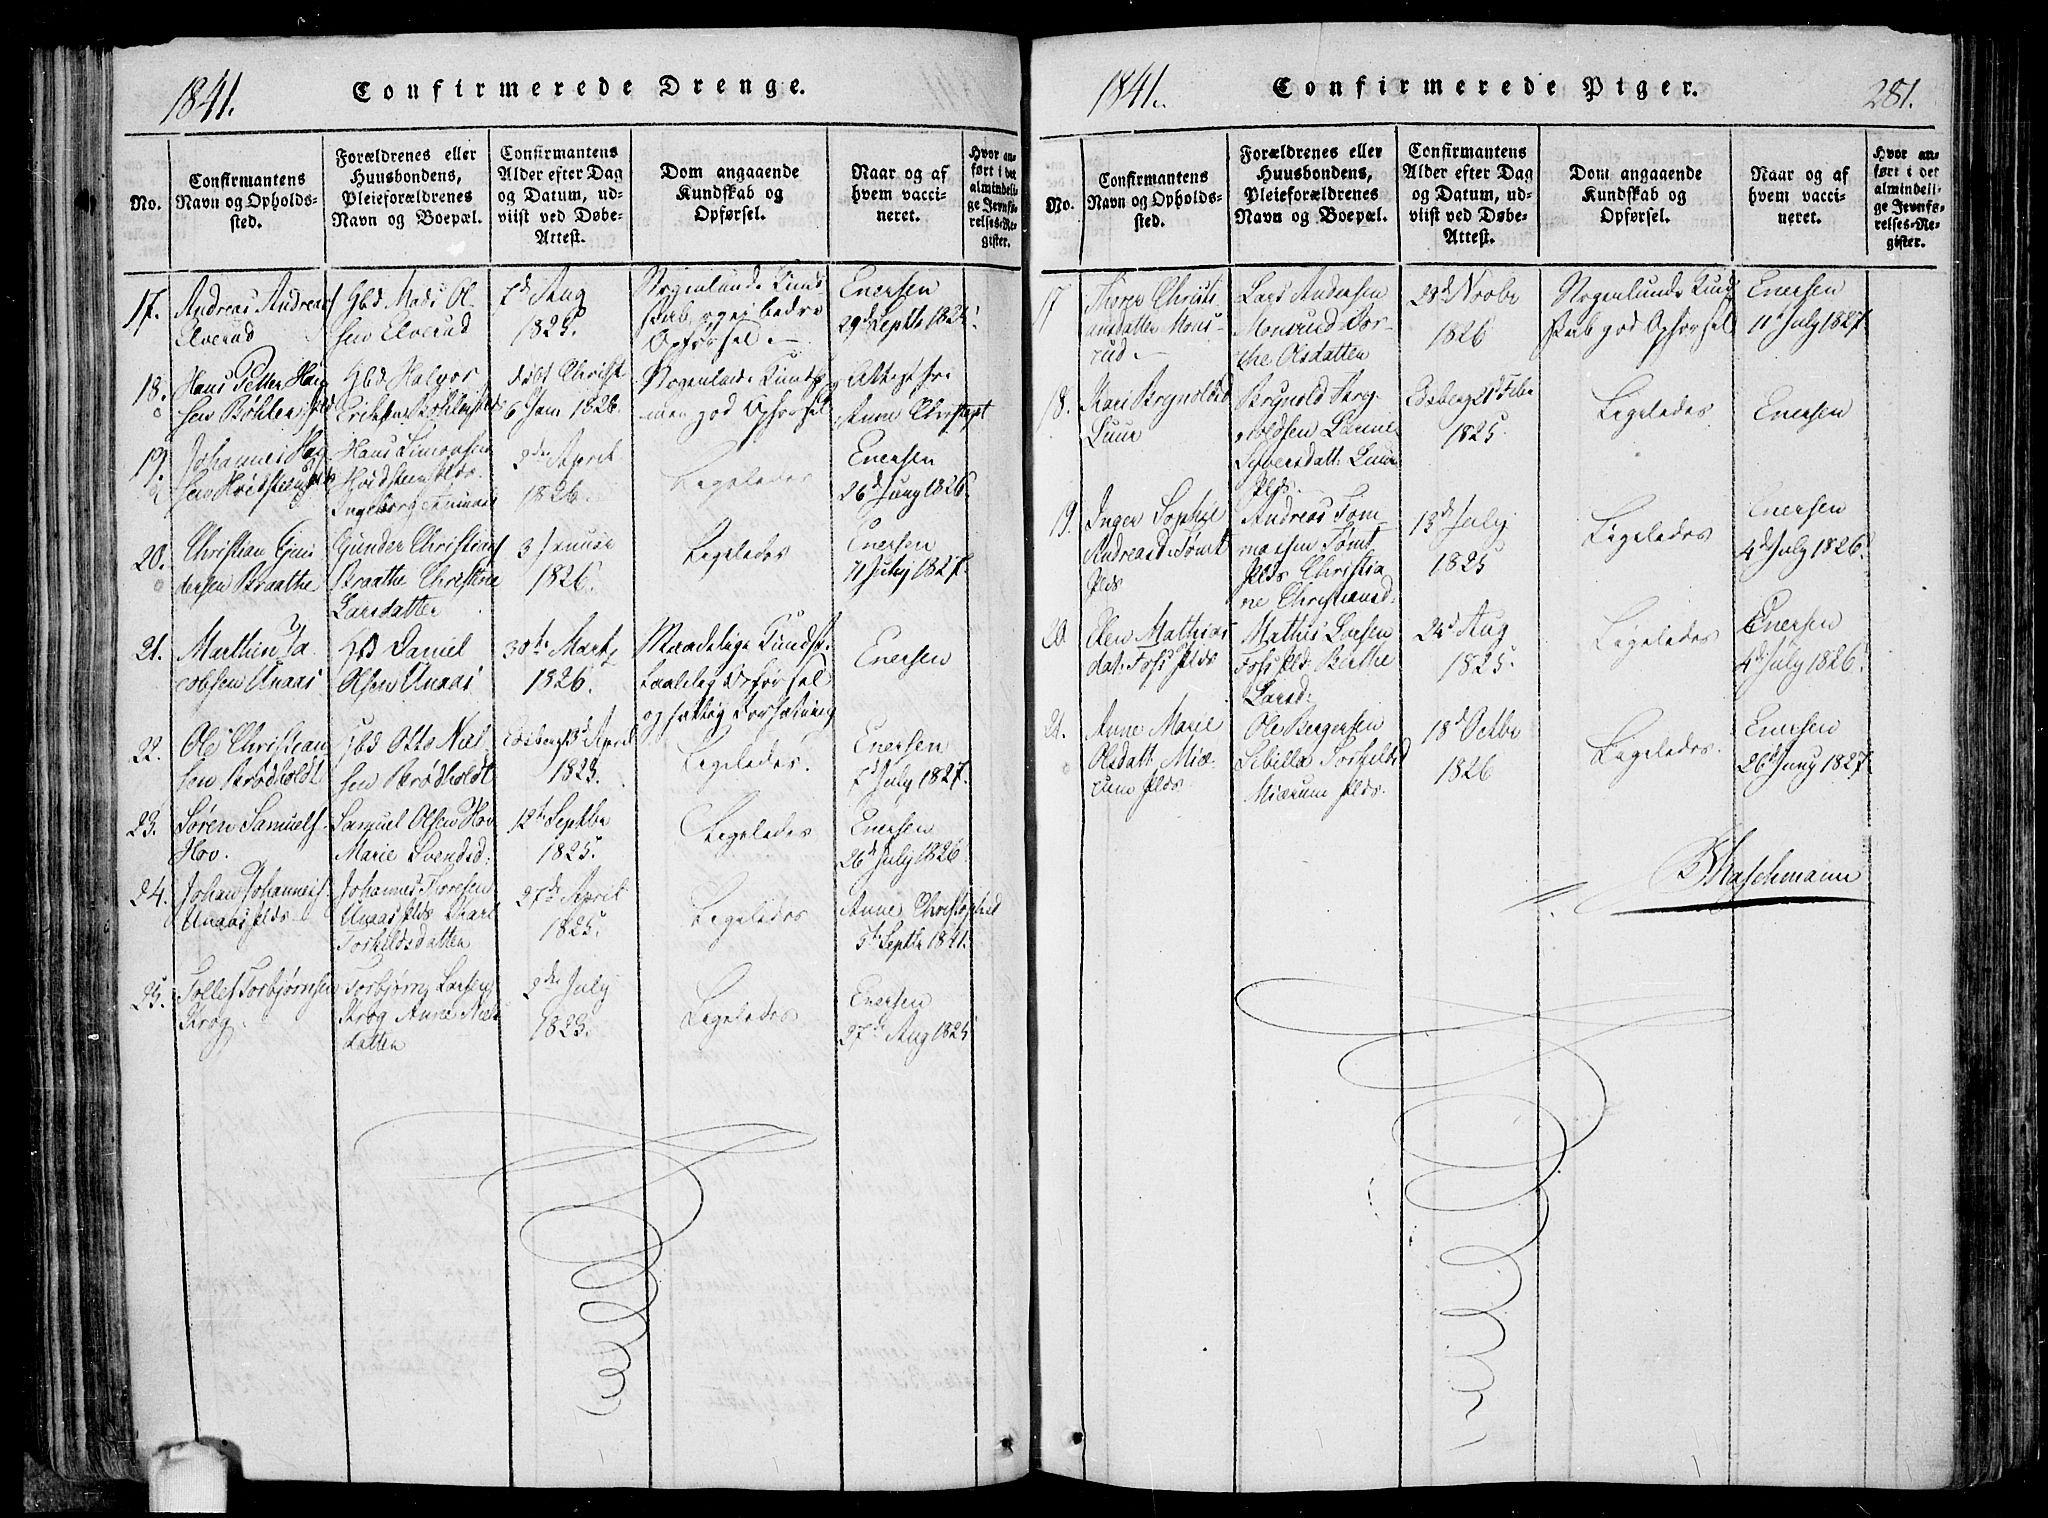 1841.
Confirmerede Drenge.
No.
Confirmantens
Navn og Opholds-
sted.
Forældrenes eller
Huusbondens,
Pleieforældrenes
Navn og Boepæl.
Confirmantens
Alder efter Dag
og Datum, ud-
viist ved Døbe-
Attest.
Dom angaaende
Kundskab og
Opførsel.
Naar og af
hvem vacci-
neret.
Hvor an-
ført i det
almindeli-
ge Jevnfø-
relses-Re-
gister.
17.
Andreas Andreas
Elverud
Gbd Mads Ol
sen Elverud
7d Aug
1825
Nogenlunde Kund
skab og ei bedre
Opførsel.
Enersen
29d Septbr
18.
Hans Petter Han
sen
Gbd Halvor
døbt Christ
6 Jan 1826.
Nogenlunde Kundsk
men god Opførsel
Attest fri
Anne
19.
Johannes Han
Hans Simonsen
Ingeborg
2den April
1826.
Ligeledes
Enersen
26d Juny 1826
20.
Christian Gun
dersen Braathe
Gunder Christians
Braathe Christine
Larsdatter
3 Januar
1826.
Ligeledes
Enersen
11 July 1827.
21.
Marthin Ja
cobsen Unaas
Gbd Daniel
Olsen Unaas
30te Marts
1826.
Maadelige Kundsk.
taalelig Opførsel
og
Enersen
22.
Ole Christian
sen Brødholdt
Gbd Otto Niel
sen Brødholdt
Edsberg 13d April
1823.
Ligeledes.
Enersen
7d July 1827.
23.
Søren Samuels
Hov.
Samuel Olsen Hov
Marie Svendsd:
12te Septbr
1825.
Ligeledes
Enersen
26d July 1826
24.
Johan Johannes
Unaas plds
Johannes Toresen
Unaas plds Kari
Torkildsdatten
27de April
1825.
Ligeledes
Anne Christophd
5te Septbr 1841.
25.
Tolles Torbjørnsen
Krog.
Torbjørn Larsen
Krog Anne Niels
datten
2den July
1823.
Ligeledes
Enersen
27de Aug 1825
1841.
Confirmerede Piger.
281.
No.
Confirmantens
Navn og Opholds-
sted.
Forældrenes eller
Huusbondens,
Pleieforældrenes
Navn og Boepæl.
Confirmantens
Alder efter Dag
og Datum, ud-
viist ved Døbe-
Attest.
Dom angaaende
Kundskab og
Opførsel.
Naar og af
hvem vacci-
neret.
Hvor an-
ført i det
almindeli-
ge Jevnfø-
relses-Re-
gister.
17
Christi
ansdatter Mons
rud.
Lars Andersen
Monsrud Dor
the Olsdatten
28d Novbr
1826
Nogenlunde Kund
skab god Opførsel
Enersen
11d July 1827.
18.
Kari Brynoldsd
Luur
Brynold Bryn
oldsen
Syversdatt: Luur
plds.
Edsberg 21d Febr
1825.
Ligeledes
Enersen
19.
Inger Sophie
Andreasd: Tømt
plds
Andreas Tom
masen Tømt
plds Christia
ne Christiansd:
13d July
1825
Ligeledes
Enersen
4d July 1826.
20.
Elen Mathias
dat: Foss plds
Mathis Larsen
Foss plds Birthe
Larsd:
24d Aug
1825.
Ligeledes
Enersen
4d July 1826.
21.
Anne Marie
Olsdatt Miæ
rum plds.
Ole Bergersen
Sibilla Torkildsd
Miærum plds.
18d Octbr
1826
Ligeledes.
Enersen
26d Juny 1827.
Maschmann